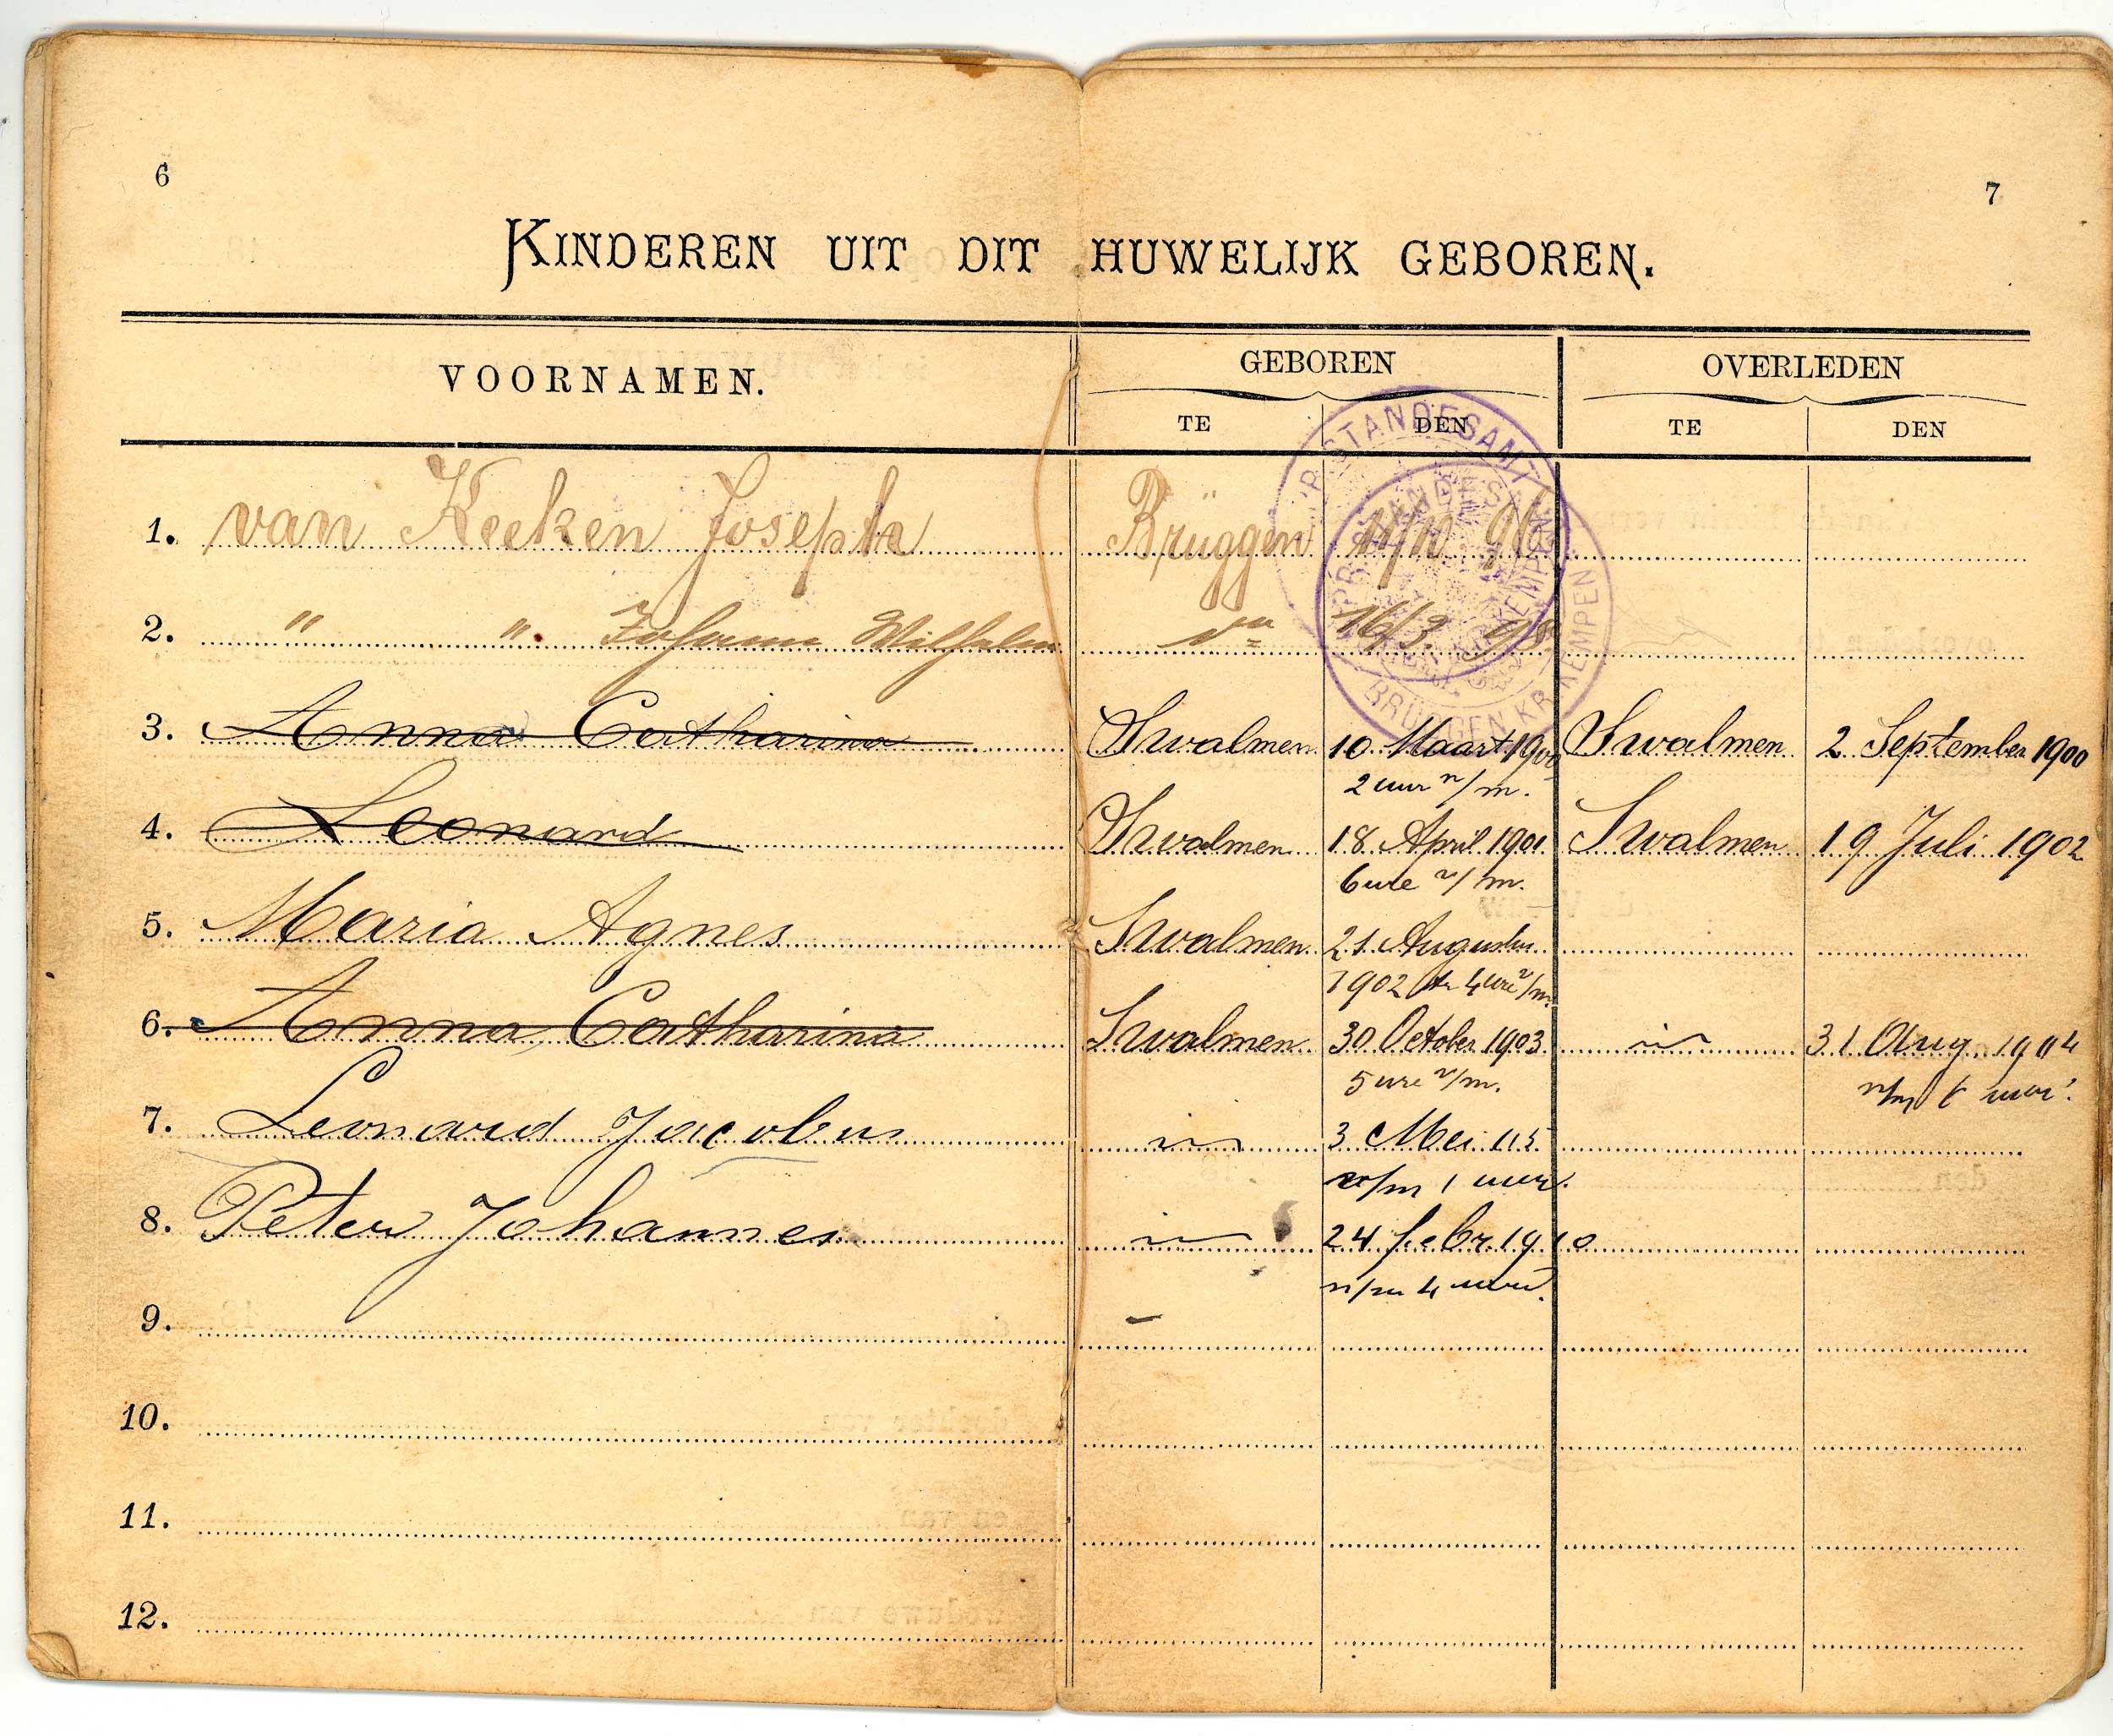 6
7
KINDEREN UIT DIT HUWELIJK GEBOREN.
VOORNAMEN.
GEBOREN
OVERLEDEN
TE
DEN
TE
DEN
STANDESAMT
BRÜGGEN KR. KEMPEN
1. van Keeken Joseph Brüggen 11/10 96
2. " " Johann Wilhelm 16/3. 98
3. Anna Catharina Swalmen 10 Maart 1900 Swalmen 2 September 1900
2 uur n/m.
4. Leonard Swalmen 18 April 1901 Swalmen 19 Juli 1902
6 ure v/m.
5. Maria Agnes Swalmen 21 Augustus
1902 4 ure v/m.
6. Anna Catharina Swalmen 30 October 1903 31 Aug. 1904
5 ure v/m.
n/m 6 uur.
7. Leonard Jacobus 3 Mei
v/m 1 uur.
8. Peter Johannes 24 febr. 1910
n/m 4 uur.
9.
10.
11.
12.